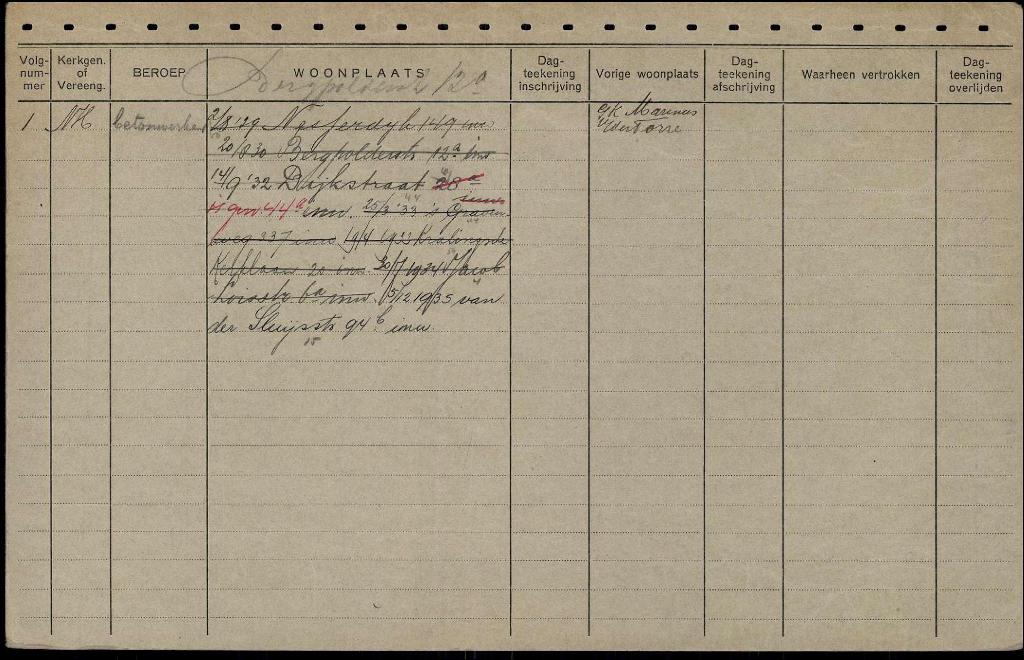 Volg-
num-
mer
Kerkgen.
of
Vereeng.
BEROEP
WOONPLAATS
Dag-
teekening
inschrijving
Vorige woonplaats
Dag-
teekening
afschrijving
Waarheen vertrokken
Dag-
teekening
overlijden
Bergpolderstr 12a
1 NH betonwerker 2/8'29 149 inw
20/8 30 Bergpolderstr 12a inw
14/9 '32 Dijkstraat 28a
44a inw. 25/3 '33 's Graven-
weg 337 inw 19/4 1933 Kralingsche
Kerklaan 20 inw. 30/7 1934 Jacob
Loisstr 6a inw. 15/12 1935 van
der Sluijsstr 94b inw.
15
GK Marinus